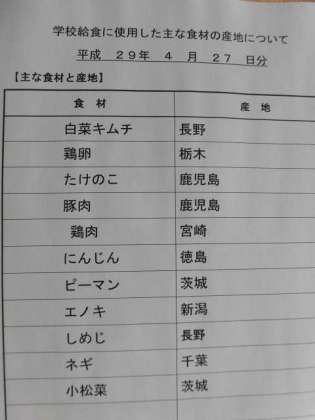 学校給食に使用した主な食材の産地について
平成 29年 4 月 27 日分
【主な食材と産地】
食 材 産 地
白菜キムチ 長野
鶏卵 栃木
たけのこ 鹿児島
豚肉 鹿児島
鶏肉 宮崎
にんじん 徳島
ピーマン 茨城
エノキ 新潟
しめじ 長野
ネギ 千葉
小松菜 茨城